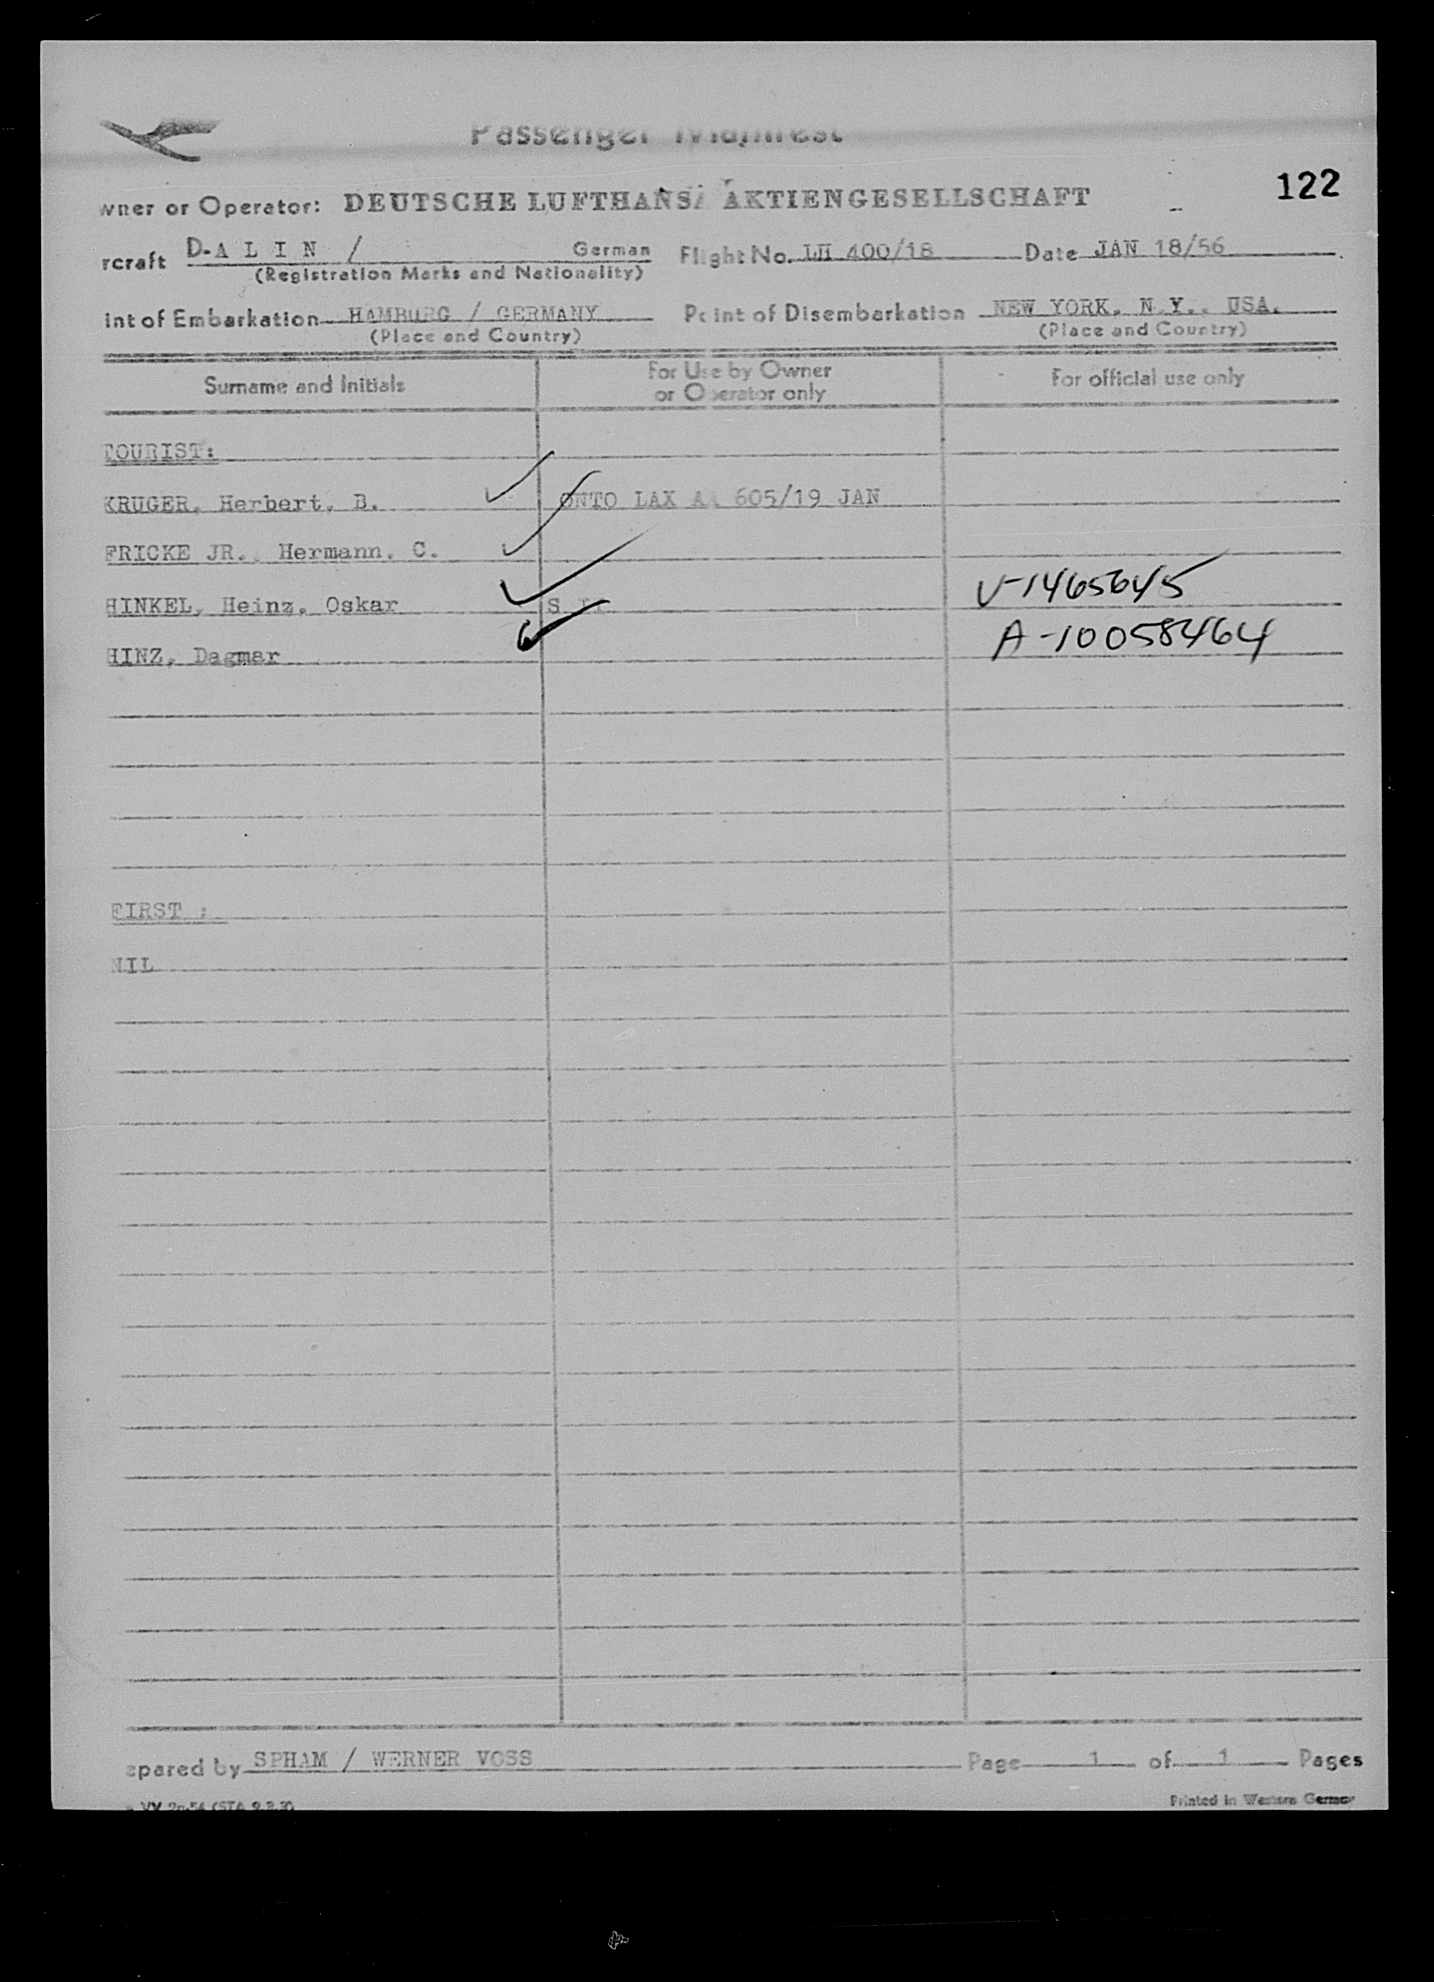 Passenger Manifest
122
wner or Operator: DEUTSCHE LUFTHANSA AKTIENGESELLSCHAFT
rcraft D-A L I N / German Flight No. LH 400/18 Date JAN 18/56
(Registration Marks and Nationality)
int of Embarkation HAMBURG / GERMANY Point of Disembarkation NEW YORK, N.Y., USA.
(Place and Country) (Place and Country)
Surname and Initials For Use by Owner or Operator only For official use only
TOURIST:
KRUGER, Herbert, B. ONTO LAX AA 605/19 JAN
FRICKE JR., Hermann, C.
HINKEL, Heinz, Oskar V-1465645
HINZ, Dagmar A-10058464
FIRST :
NIL
epared by SPHAM / WERNER VOSS Page 1 of 1 Pages
Printed in Western Germany